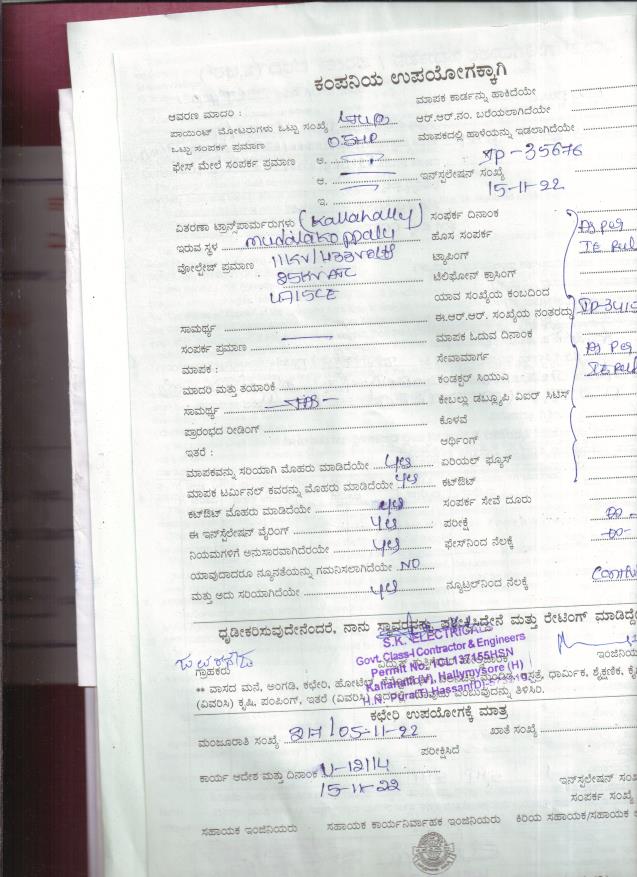 ಕಂಪನಿಯ ಉಪಯೋಗಕ್ಕಾಗಿ
ಮಾಪಕ ಕಾರ್ಡನ್ನು ಹಾಕಿದೆಯೇ
ಆವರಣ ಮಾದರಿ :
ಆರ್.ಆರ್.ನಂ. ಬರೆಯಲಾಗಿದೆಯೇ
ಪಾಯಿಂಟ್ ಮೋಟರುಗಳು ಒಟ್ಟು ಸಂಖ್ಯೆ
ಮಾಪಕದಲ್ಲಿ ಹಾಳೆಯನ್ನು ಇಡಲಾಗಿದೆಯೇ
ಒಟ್ಟು ಸಂಪರ್ಕ ಪ್ರಮಾಣ 05HP
ಫೇಸ್ ಮೇಲೆ ಸಂಪರ್ಕ ಪ್ರಮಾಣ ಅ.
ಆ. ಇನ್‌ಸ್ಪಲೇಷನ್ ಸಂಖ್ಯೆ IP-35676
15-11-22
ಇ.
ವಿತರಣಾ ಟ್ರಾನ್ಸ್‌ಪಾರ್ಮರುಗಳು (Kallahally) ಸಂಪರ್ಕ ದಿನಾಂಕ
ಇರುವ ಸ್ಥಳ mudalakoppalu ಹೊಸ ಸಂಪರ್ಕ As per
ವೋಲ್ಟೇಜ್ ಪ್ರಮಾಣ 11KV/433volts ಟ್ಯಾಪಿಂಗ್ IE Rul
25KV ಟೆಲಿಫೋನ್ ಕ್ರಾಸಿಂಗ್
ಯಾವ ಸಂಖ್ಯೆಯ ಕಂಬದಿಂದ
ಸಾಮರ್ಥ್ಯ ಈ.ಆರ್.ಆರ್. ಸಂಖ್ಯೆಯ ನಂತರದ್ದು IP-3415
ಸಂಪರ್ಕ ಪ್ರಮಾಣ ಮಾಪಕ ಓದುವ ದಿನಾಂಕ
ಮಾಪಕ : ಸೇವಾಮಾರ್ಗ As per
ಮಾದರಿ ಮತ್ತು ತಯಾರಿಕೆ ಕಂಡಕ್ಟರ್ ಸಿಯುವಿ IE Rul
ಸಾಮರ್ಥ್ಯ ಕೇಬಲ್ಲು ಡಬ್ಲ್ಯೂಪಿ ವಿಐರ್ ಸಿಟಿಸ್
ಪ್ರಾರಂಭದ ರೀಡಿಂಗ್ ಕೊಳವೆ
ಇತರೆ : ಆರ್ಥಿಂಗ್
ಮಾಪಕವನ್ನು ಸರಿಯಾಗಿ ಮೊಹರು ಮಾಡಿದೆಯೇ yes ಏರಿಯಲ್ ಫ್ಯೂಸ್
ಮಾಪಕ ಟರ್ಮಿನಲ್ ಕವರನ್ನು ಮೊಹರು ಮಾಡಿದೆಯೇ yes ಕಟ್‌ಔಟ್
ಕಟ್‌ಔಟ್ ಮೊಹರು ಮಾಡಿದೆಯೇ yes ಸಂಪರ್ಕ ಸೇವೆ ದೂರು
ಈ ಇನ್‌ಸ್ಪೆಲೇಷನ್ ವೈರಿಂಗ್ yes ಪರೀಕ್ಷೆ
ನಿಯಮಗಳಿಗೆ ಅನುಸಾರವಾಗಿದೆರಯೇ yes ಫೇಸ್‌ನಿಂದ ನೆಲಕ್ಕೆ
ಯಾವುದಾದರೂ ನ್ಯೂನತೆಯನ್ನು ಗಮನಿಸಲಾಗಿದೆಯೇ NO
ಮತ್ತು ಅದು ಸರಿಯಾಗಿದೆಯೇ yes ನ್ಯೂಟ್ರಲ್‌ನಿಂದ ನೆಲಕ್ಕೆ
ಧೃಡೀಕರಿಸುವುದೇನೆಂದರೆ, ನಾನು ಸ್ಥಾವರವನ್ನು ಪರೀಕ್ಷಿಸಿದ್ದೇನೆ ಮತ್ತು ರೇಟಿಂಗ್ ಮಾಡಿದ್ದೇ
S.K. ELECTRICALS
Govt. Class-I Contractor & Engineers
Permit No. 1CL137155HSN
Kallahalli(V), Hallymysore (H)
H.N. Pura(T), Hassan(D)
ಗ್ರಾಹಕರು
ಇಂಜಿನಿಯ
** ವಾಸದ ಮನೆ, ಅಂಗಡಿ, ಕಛೇರಿ, ಹೋಟೆಲ್ ಆಸ್ಪತ್ರೆ, ಧಾರ್ಮಿಕ, ಶೈಕ್ಷಣಿಕ,
(ವಿವರಿಸಿ) ಕೃಷಿ, ಪಂಪಿಂಗ್, ಇತರೆ (ವಿವರಿಸಿ) ಎಂಬುವುದನ್ನು ತಿಳಿಸಿರಿ.
ಕಛೇರಿ ಉಪಯೋಗಕ್ಕೆ ಮಾತ್ರ
ಮಂಜೂರಾತಿ ಸಂಖ್ಯೆ 05-11-22 ಖಾತೆ ಸಂಖ್ಯೆ
ಪರೀಕ್ಷಿಸಿದೆ
ಕಾರ್ಯ ಆದೇಶ ಮತ್ತು ದಿನಾಂಕ
15-11-22
ಇನ್‌ಸ್ಪೆಲೇಷನ್
ಸಂಪರ್ಕ ಸಂಖ್ಯೆ
ಸಹಾಯಕ ಇಂಜಿನಿಯರು ಸಹಾಯಕ ಕಾರ್ಯನಿರ್ವಾಹಕ ಇಂಜಿನಿಯರು ಕಿರಿಯ ಸಹಾಯಕ/ಸಹಾಯಕ